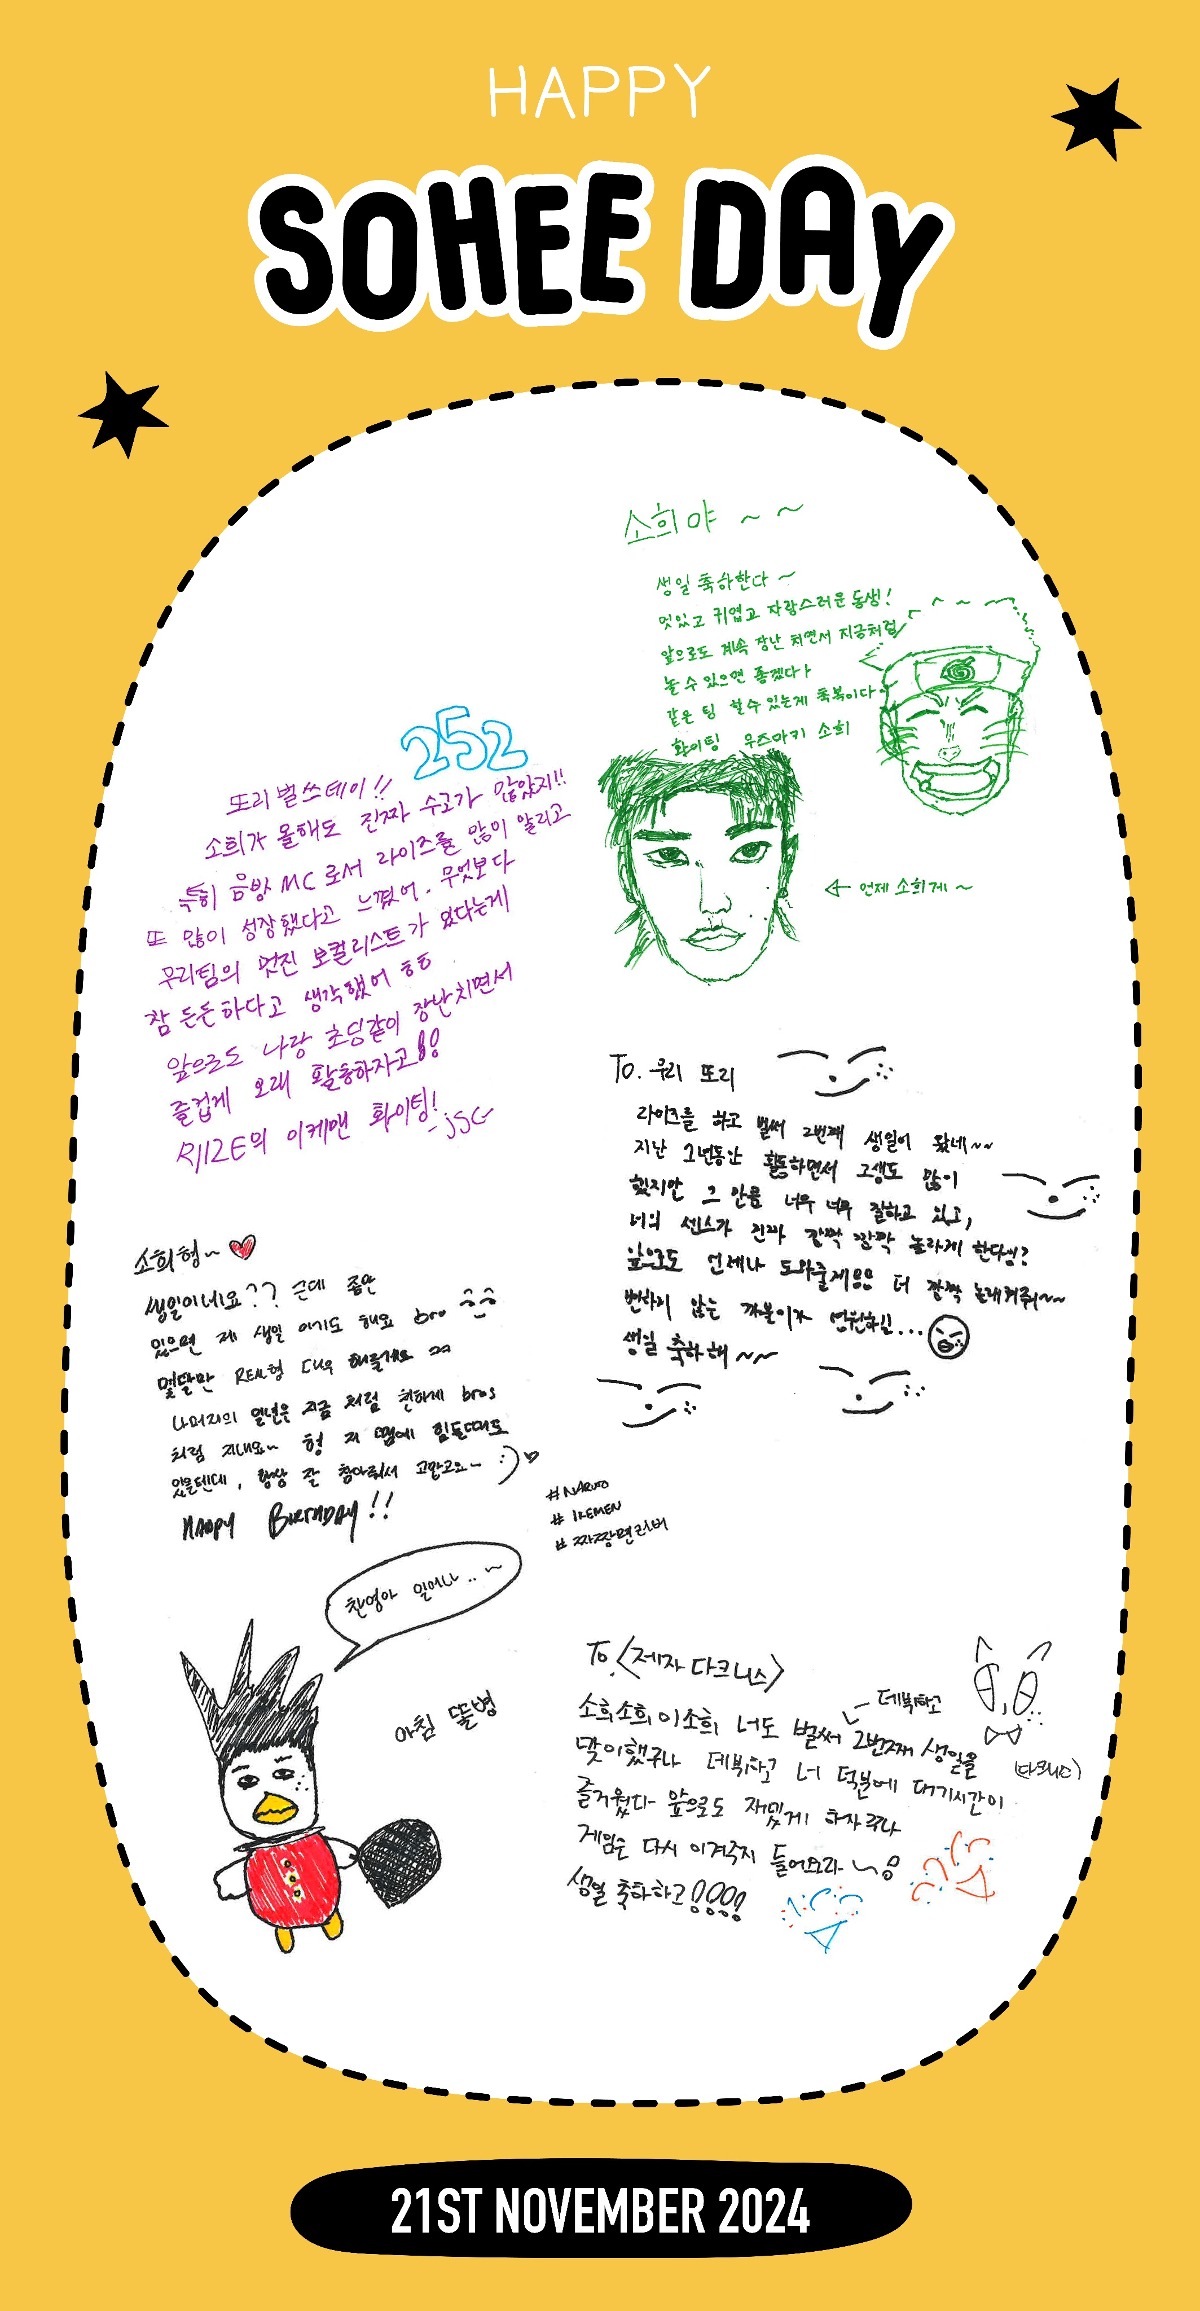 HAPPY
SOHEE DAY
소희야 ~ ~
생일 축하한다 ~
멋있고 귀엽고 자랑스러운 동생!
앞으로도 계속 장난 치면서 지금처럼
놀 수 있으면 좋겠다
같은 팀 할 수 있는게 축복이다
화이팅 우즈마키 소희
언제 소희게 ~
252
또리 벌쓰데이!!
소희가 올해도 진짜 수고가 많았지!!
특히 음방 MC로서 라이즈를 많이 알리고
또 많이 성장했다고 느꼈어. 무엇보다
우리팀의 멋진 보컬리스트가 있다는게
참 든든하다고 생각했어 ㅎㅎ
앞으로도 나랑 초딩같이 장난치면서
즐겁게 오래 활동하자고!!
RIIZE의 이케맨 화이팅!
-JSC-
To. 우리 또리
라이즈를 하고 벌써 2번째 생일이 왔네~~
지난 1년동안 활동하면서 고생도 많이
했지만 그 만큼 너무 너무 잘하고 있고,
너의 센스가 진짜 깜짝 깜짝 놀라게 한다잉?
앞으로도 언제나 도와줄게 더 깜짝 놀래켜줘~~
변하지 않는 까불이가 영원하길...
생일 축하해~~
소희형~
생일이네요?? 근데 좀만
있으면 제 생일 이기도 해요 bro
몇달만 REAL형 대우 해줄게요
나머지의 일년은 지금 처럼 친하게 bros
처럼 지내요~ 형 저 땜에 힘들때도
있을텐데, 항상 잘 참아줘서 고맙고요~ :)
HAPPY BIRTHDAY!!
#NARUTO
#IKEMEN
#짜장면러버
찬영아 일어나..~
아침 똘병
To.<제자 다크니스>
데뷔하고
소희소희이소희 너도 벌써 2번째 생일을
맞이했구나 데뷔하고 너 덕분에 대기시간이
(다크니스)
즐거웠다 앞으로도 재밌게 하자구나
게임은 다시 이겨주지 들어오라
생일 축하하고!!!!
21ST NOVEMBER 2024